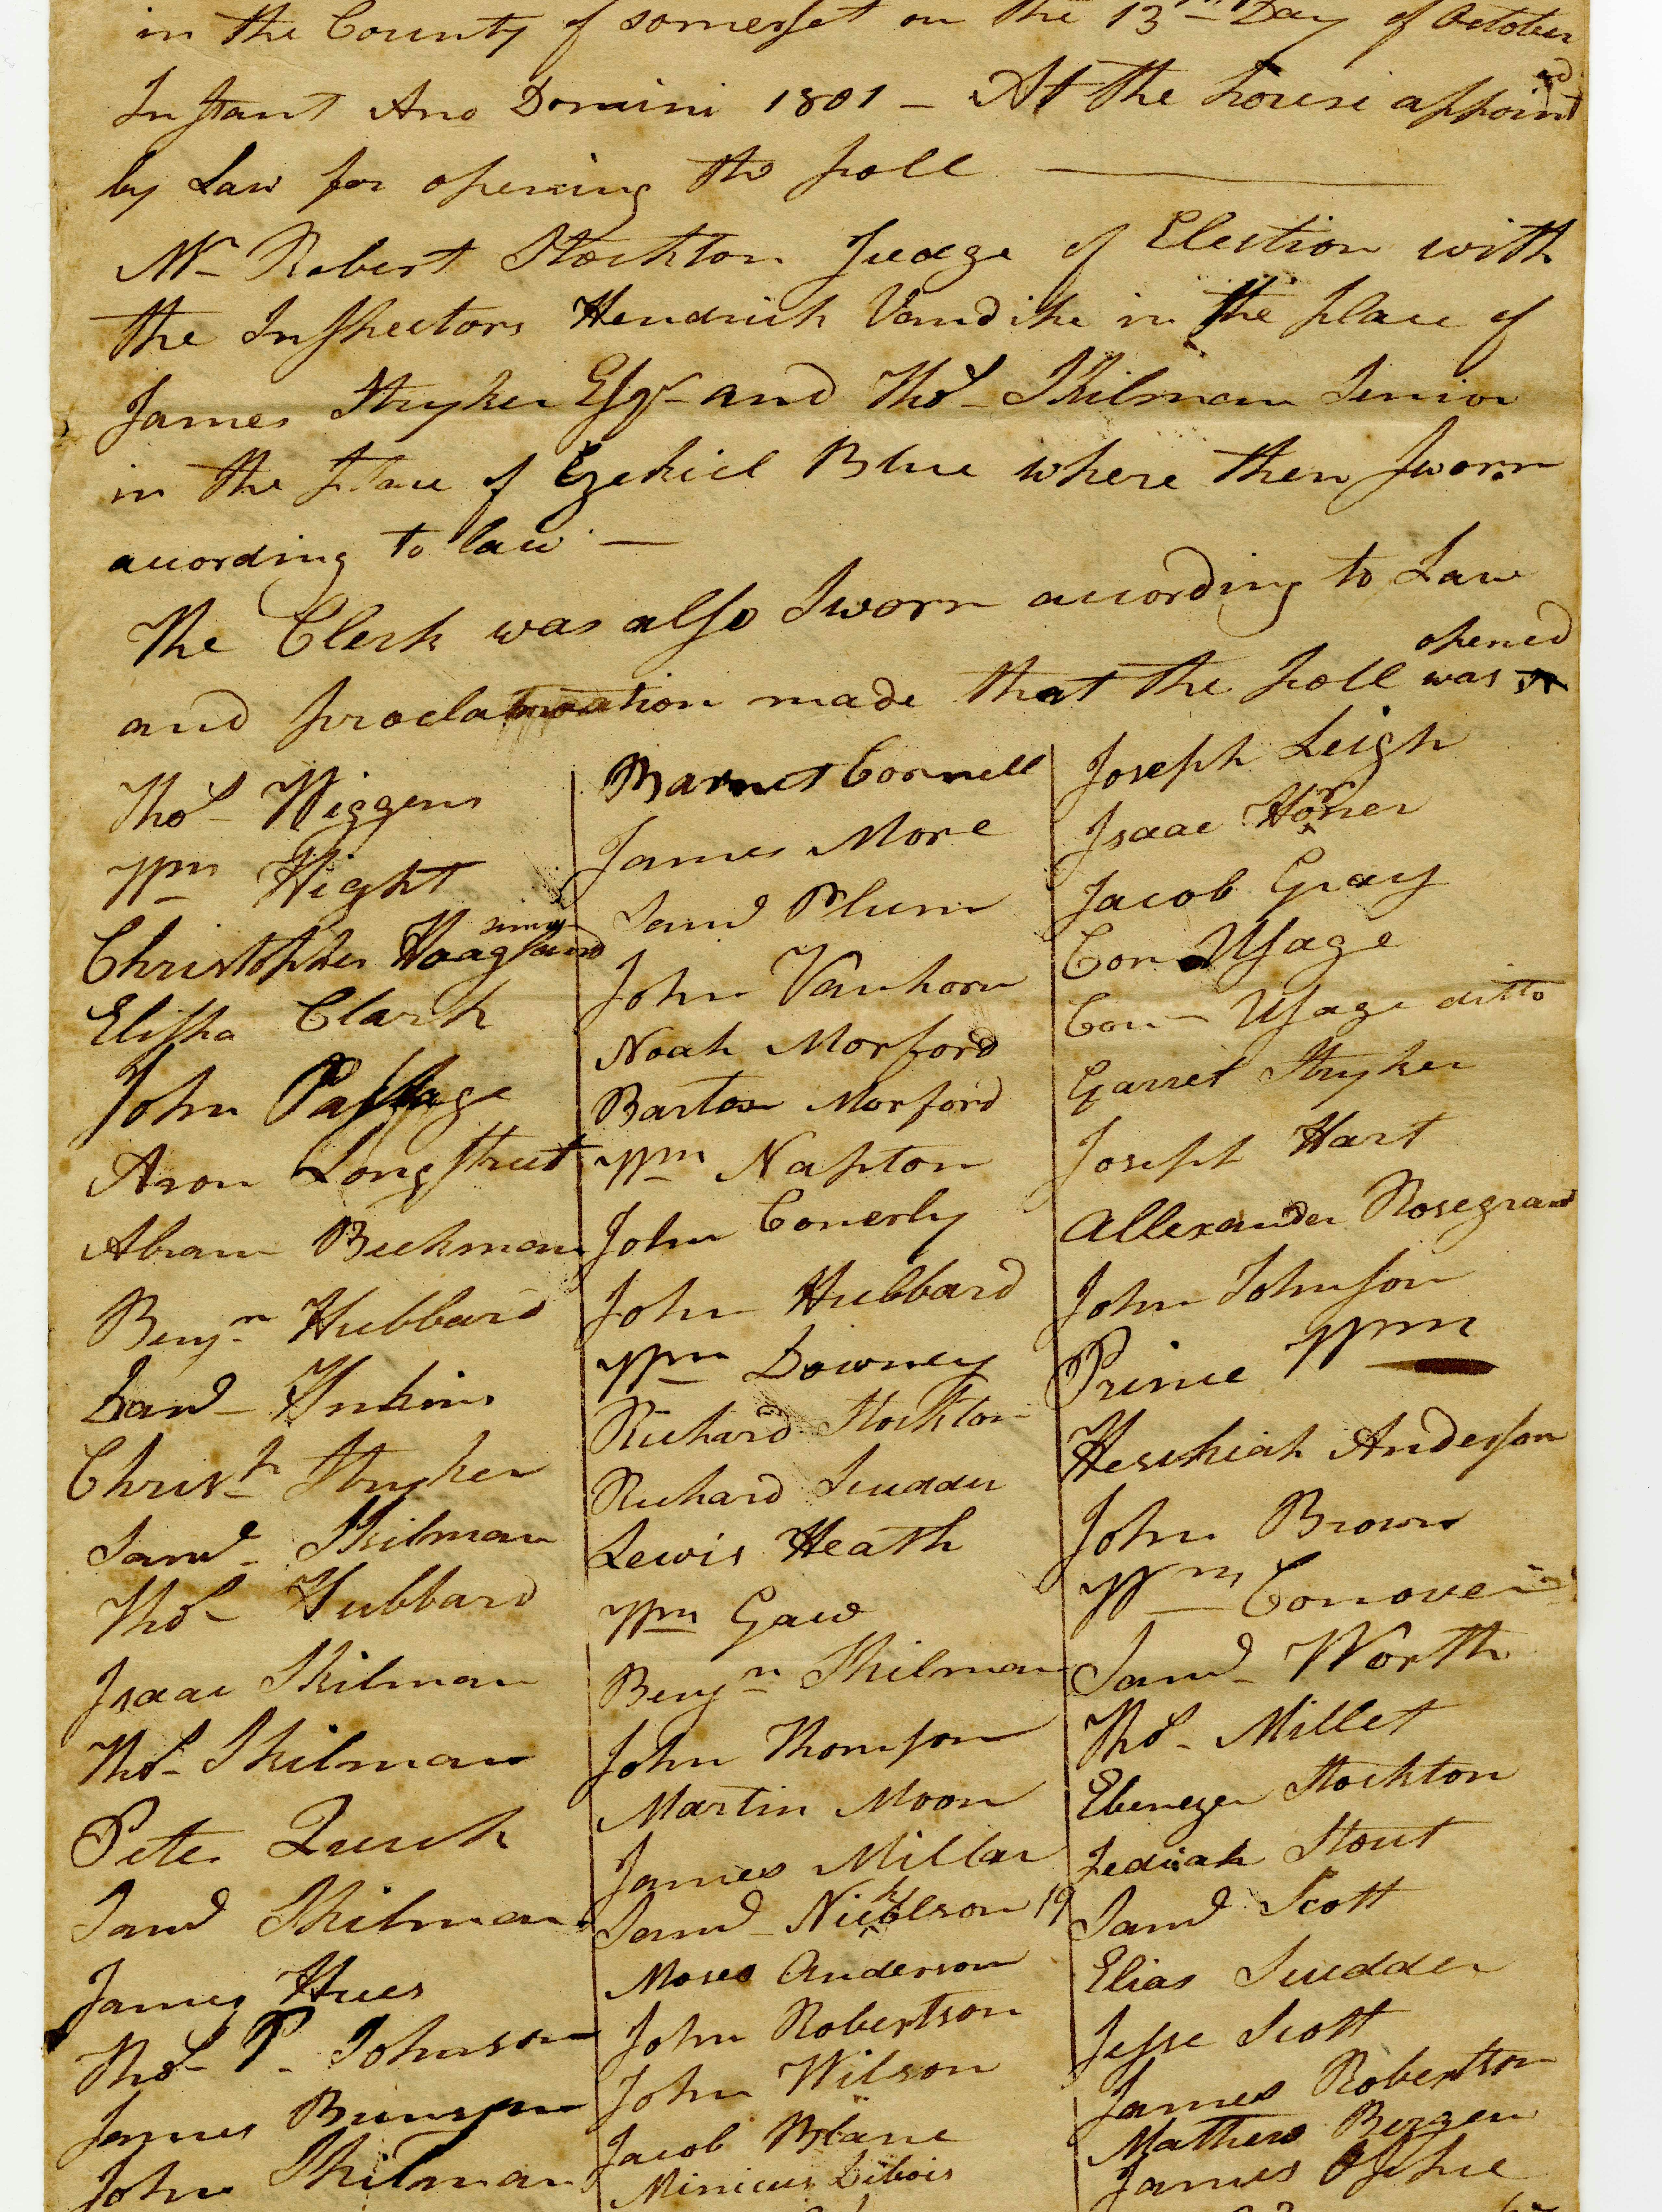 in the County of Somerset on the 13th Day of October
Instant Ano Domini 1801 — At the house appointed
by Law for opening the poll
Mr Robert Stockton Judge of Election with
the Inspectors Hendrick Vandike in the place of
James Stryker Esqr and Thos Skilman Senior
in the place of Ezekiel Blue where then sworn
according to law —
The Clerk was also Sworn according to Law
opened
and proclamation made that the poll was
Thos Wiggens
Wm Hight
Christopher Hoagland
Elisha Clark
John Passage
Aron Longstreet
Abram Beekman
Benjn Hubbard
Saml Inkins
Christr Stryker
Saml Skilman
Thos Hubbard
Isaac Skilman
Thos Skilman
Peter Quick
Saml Skilman
James Hues
Thos P. Johnson
James Brunson
John Skilman
Barnet Cornell
James More
Saml Plum
John Vanhorn
Noah Morford
Barton Morford
Wm Napton
John Conerly
John Hubbard
Wm Downey
Richard Stockton
Richard Scudder
Lewis Heath
Wm Gaw
Benjn Skilman
John Thomson
Martin Moon
James Millar
Saml Nicholson 19
Moses Anderson
John Robertson
John Wilson
Jacob Blane
Minicus Dibois
Joseph Leigh
Isaac Horner
Jacob Gray
Con Updage
Con Updage ditto
Garret Stryker
Joseph Hart
Allexander Rosegrant
John Johnson
Prince Wm
Hesekiah Anderson
John Brown
Wm Conover
Saml Worth
Thos Millet
Ebenezer Stockton
Jediah Stout
Saml Scott
Elias Scudder
Jesse Scott
James Robertson
Mathew Bergen
James